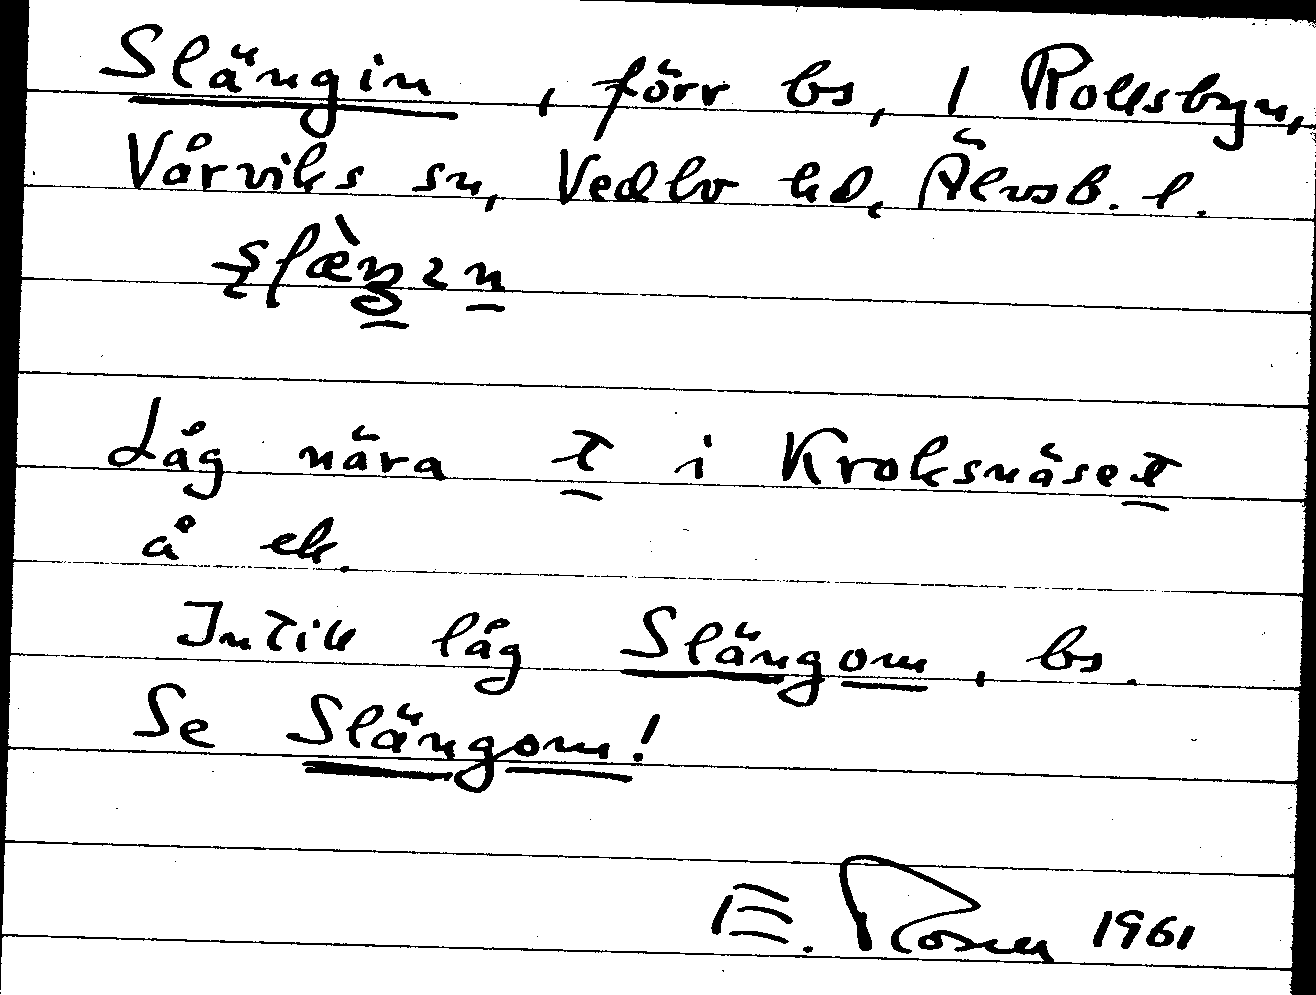 Slängin, förr bs, 1 Rollsbyn,
Vårviks sn, Vedbo hd, Älvsb. l.
Låg nära t i Kroksnäset
å ek.
Intill låg Slängom, bs.
Se Slängom!
E. Rosell 1961